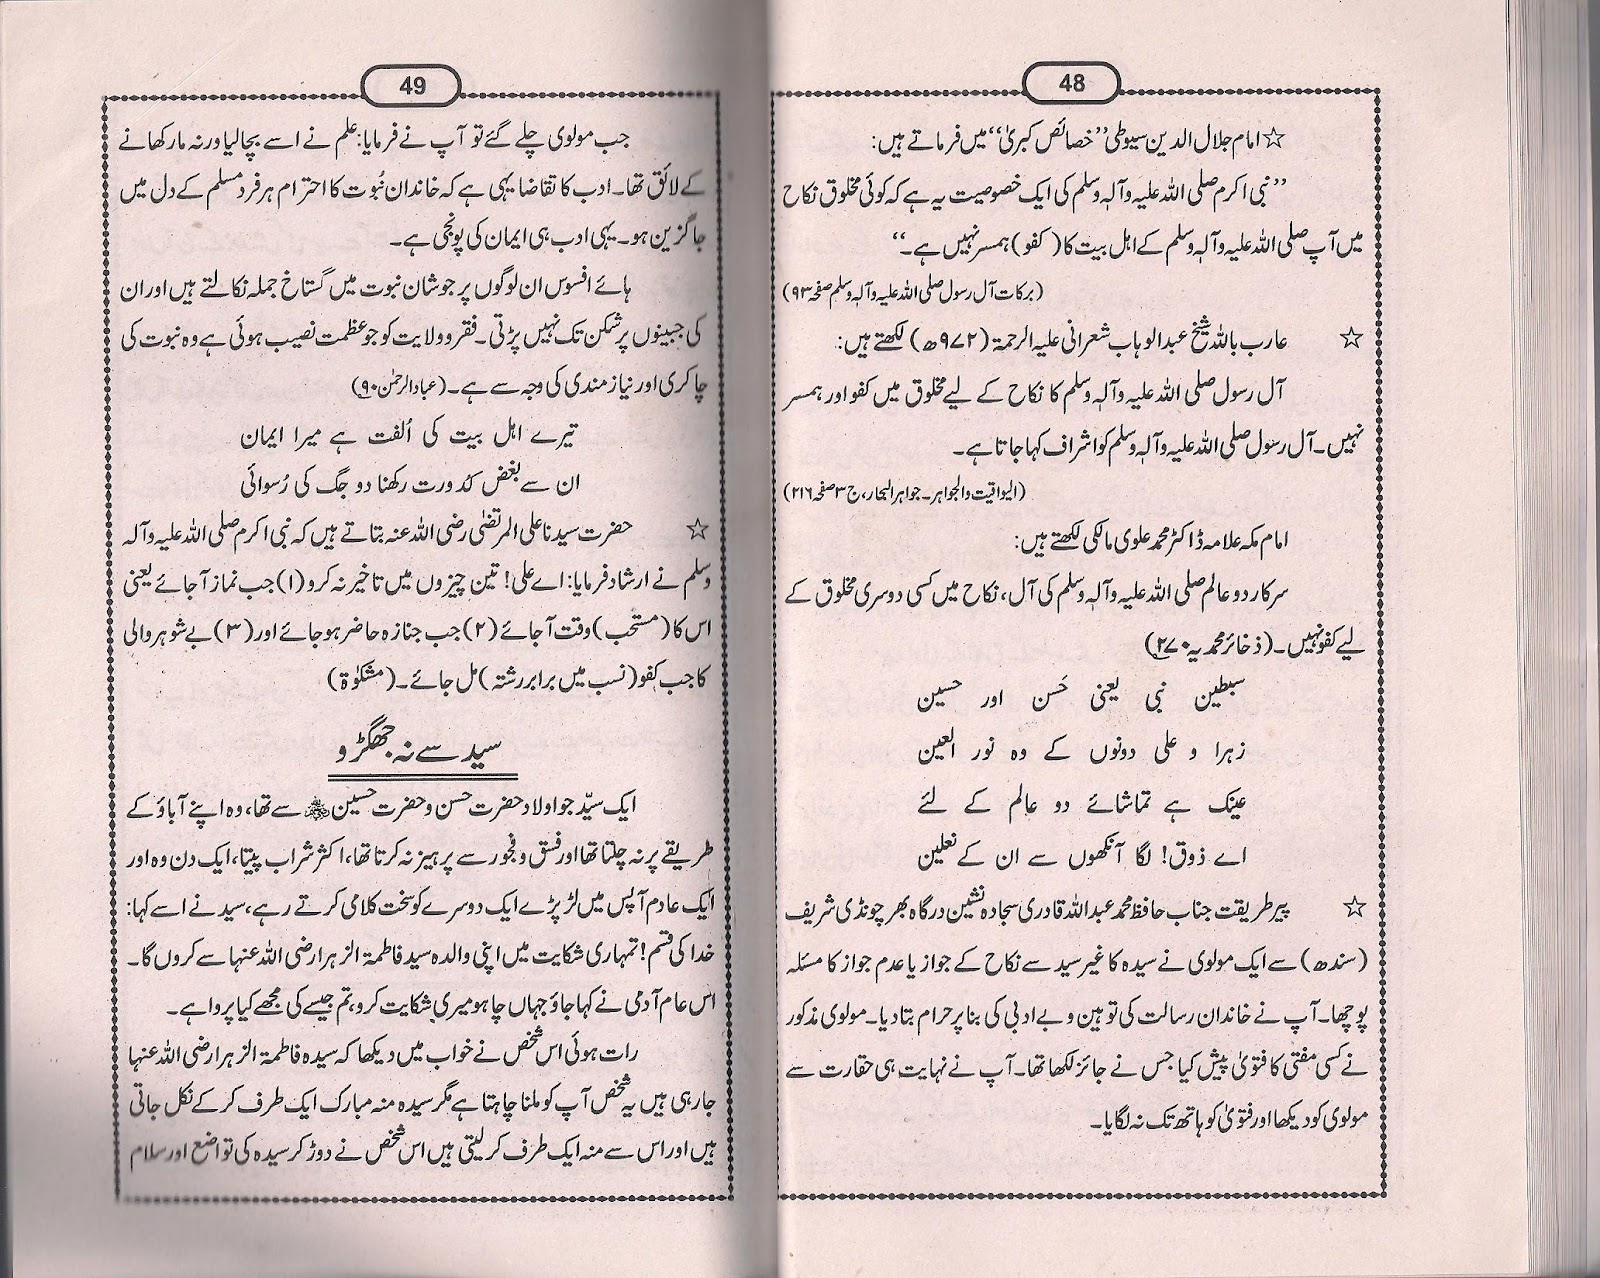 48
☆ امام جلال الدین سیوطی ”خصائص کبریٰ“ میں فرماتے ہیں:
”نبی اکرم صلی اللہ علیہ وآلہٖ وسلم کی ایک خصوصیت یہ ہے کہ کوئی مخلوق نکاح
میں آپ صلی اللہ علیہ وآلہٖ وسلم کے اھل بیت کا (کفو) ہمسر نہیں ہے۔“
(برکات آل رسول صلی اللہ علیہ وآلہٖ وسلم صفحہ ۹۳)
☆ عارب باللہ شیخ عبدالوہاب شعرانی علیہ الرحمۃ (۹۷۲ھ) لکھتے ہیں:
آل رسول صلی اللہ علیہ وآلہٖ وسلم کا نکاح کے لیے مخلوق میں کفو اور ہمسر
نہیں۔ آل رسول صلی اللہ علیہ وآلہٖ وسلم کو اشراف کہا جاتا ہے۔
(الیواقیت والجواہر۔ جواہر البحار، ج ۳ صفحہ ۲۱۶)
امام مکہ علامہ ڈاکٹر محمد علوی مالکی لکھتے ہیں:
سرکار دو عالم صلی اللہ علیہ وآلہٖ وسلم کی آل، نکاح میں کسی دوسری مخلوق کے
لیے کفو نہیں۔ (ذخائر محمدیہ ۲۷۰)
سبطین نبی یعنی حَسن اور حسین
زہرا و علی دونوں کے وہ نور العین
عینک ہے تماشائے دو عالم کے لئے
اے ذوق! لگا آنکھوں سے ان کے نعلین
☆ پیر طریقت جناب حافظ محمد عبداللہ قادری سجادہ نشین درگاہ بھرچونڈی شریف
(سندھ) سے ایک مولوی نے سیدہ کا غیر سید سے نکاح کے جواز یا عدم جواز کا مسئلہ
پوچھا۔ آپ نے خاندان رسالت کی توہین و بے ادبی کی بنا پر حرام بتا دیا۔ مولوی مذکور
نے کسی مفتی کا فتویٰ پیش کیا جس نے جائز لکھا تھا۔ آپ نے نہایت ہی حقارت سے
مولوی کو دیکھا اور فتویٰ کو ہاتھ تک نہ لگایا۔
49
جب مولوی چلے گئے تو آپ نے فرمایا: علم نے اسے بچا لیا ورنہ مار کھانے
کے لائق تھا۔ ادب کا تقاضا یہی ہے کہ خاندان نُبوت کا احترام ہر فرد مسلم کے دل میں
جاگزین ہو۔ یہی ادب ہی ایمان کی پونجی ہے۔
ہائے افسوس ان لوگوں پر جو شان نبوت میں گستاخ جملہ نکالتے ہیں اور ان
کی جبینوں پر شکن تک نہیں پڑتی۔ فقر و ولایت کو جو عظمت نصیب ہوئی ہے وہ نبوت کی
چاکری اور نیاز مندی کی وجہ سے ہے۔ (عباد الرحمٰن ۹۰)
تیرے اھل بیت کی اُلفت ہے میرا ایمان
ان سے بغض کدُورت رکھنا دو جگ کی رُسوائی
☆ حضرت سیدنا علی المرتضٰی رضی اللہ عنہ بتاتے ہیں کہ نبی اکرم صلی اللہ علیہ وآلہ
وسلم نے ارشاد فرمایا: اے علی! تین چیزوں میں تاخیر نہ کرو (۱) جب نماز آجائے یعنی
اس کا (مستحب) وقت آجائے (۲) جب جنازہ حاضر ہو جائے اور (۳) بے شوہر والی
کا جب کفو (نسب میں برابر رشتہ) مل جائے۔ (مشکوٰۃ)
سید سے نہ جھگڑو
ایک سیّد جو اولاد حضرت حسن و حضرت حسین سے تھا، وہ اپنے آباؤ کے
طریقے پر نہ چلتا تھا اور فسق و فجور سے پرہیز نہ کرتا تھا، اکثر شراب پیتا، ایک دن وہ اور
ایک عادم آپس میں لڑ پڑے ایک دوسرے کو سخت کلامی کرتے رہے، سید نے اسے کہا:
خدا کی قسم! تمہاری شکایت میں اپنی والدہ سید فاطمۃ الزہرا رضی اللہ عنہا سے کروں گا۔
اس عام آدمی نے کہا جاؤ جہاں چاہو میری شکایت کرو، تم جیسے کی مجھے کیا پروا ہے۔
رات ہوئی اس شخص نے خواب میں دیکھا کہ سیدہ فاطمۃ الزہرا رضی اللہ عنہا
جا رہی ہیں یہ شخص آپ کو ملنا چاہتا ہے مگر سیدہ منہ مبارک ایک طرف کر کے نکل جاتی
ہیں اور اس سے منہ ایک طرف کر لیتی ہیں اس شخص نے دوڑ کر سیدہ کی تواضع اور سلام